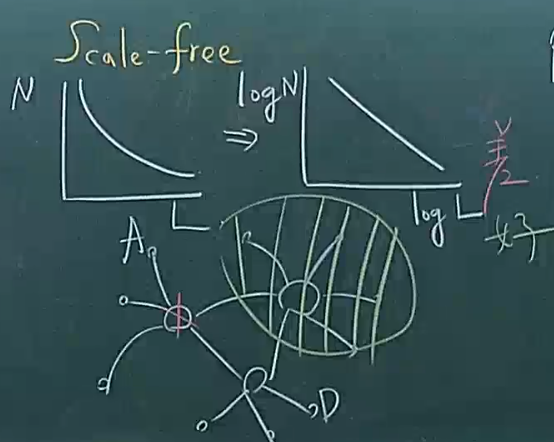 Scale-free
N
L
⇒
log N
log L
A
D
好